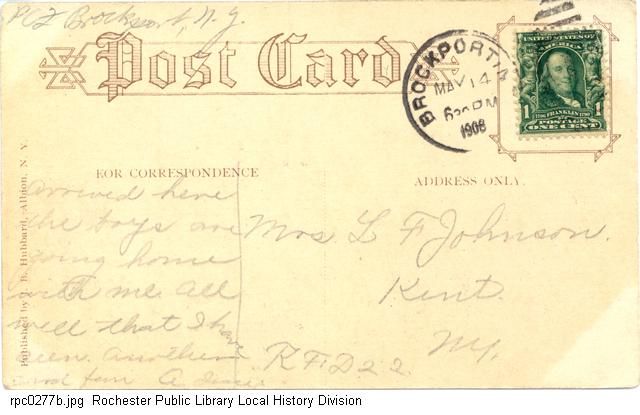 PCZ Brockport, N.Y.
Post Card
BROCKPORT
MAY 14
630 PM
1908
UNITED STATES OF AMERICA
1 FRANKLIN 1
POSTAGE
ONE CENT
FOR CORRESPONDENCE
ADDRESS ONLY.
Published by J. B. Hubbard, Albion, N. Y.
arrived here
the boys are
going home
with me all
well that I have
seen. Another
Mrs L F Johnson.
Kent.
NY.
R.F.D 22.
rpc0277b.jpg Rochester Public Library Local History Division